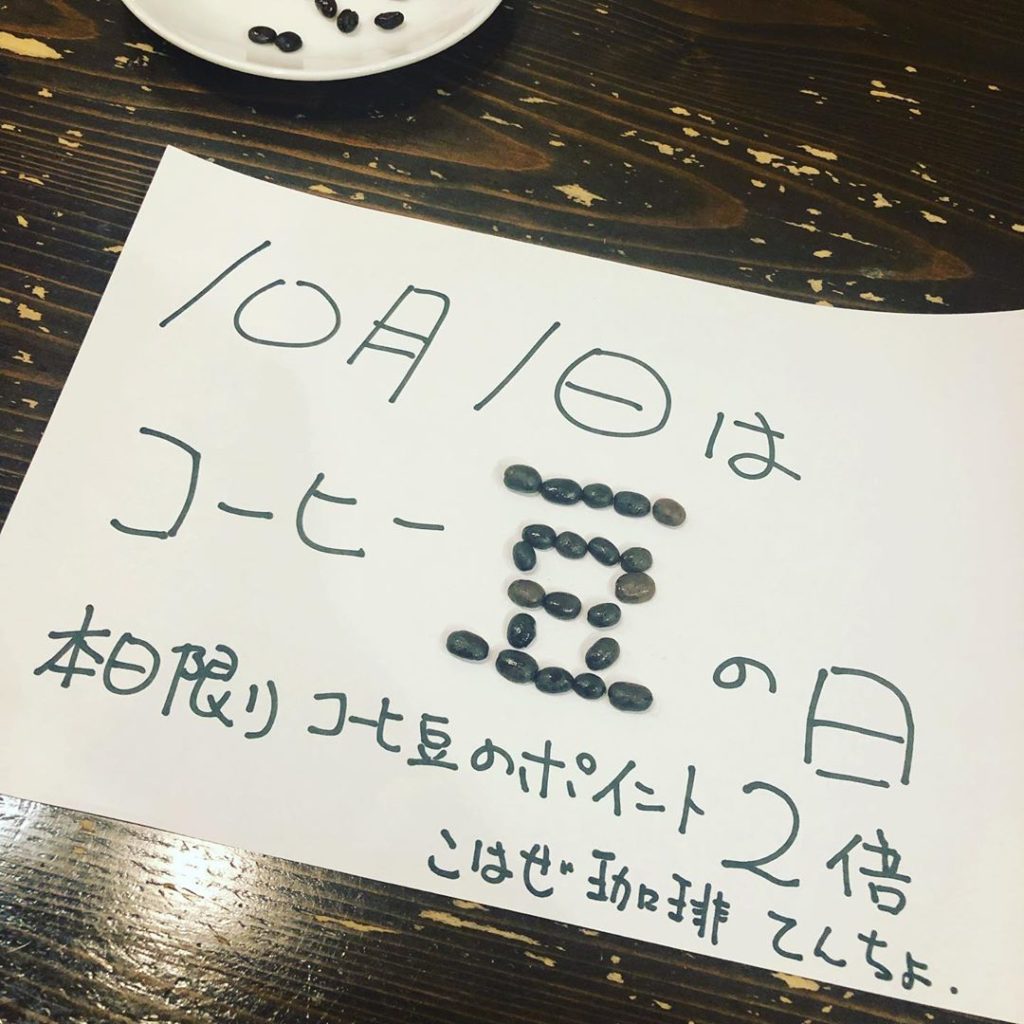 10月1日は
コーヒー豆の日
本日限りコーヒー豆のポイント2倍
こはぜ珈琲 てんちょ.